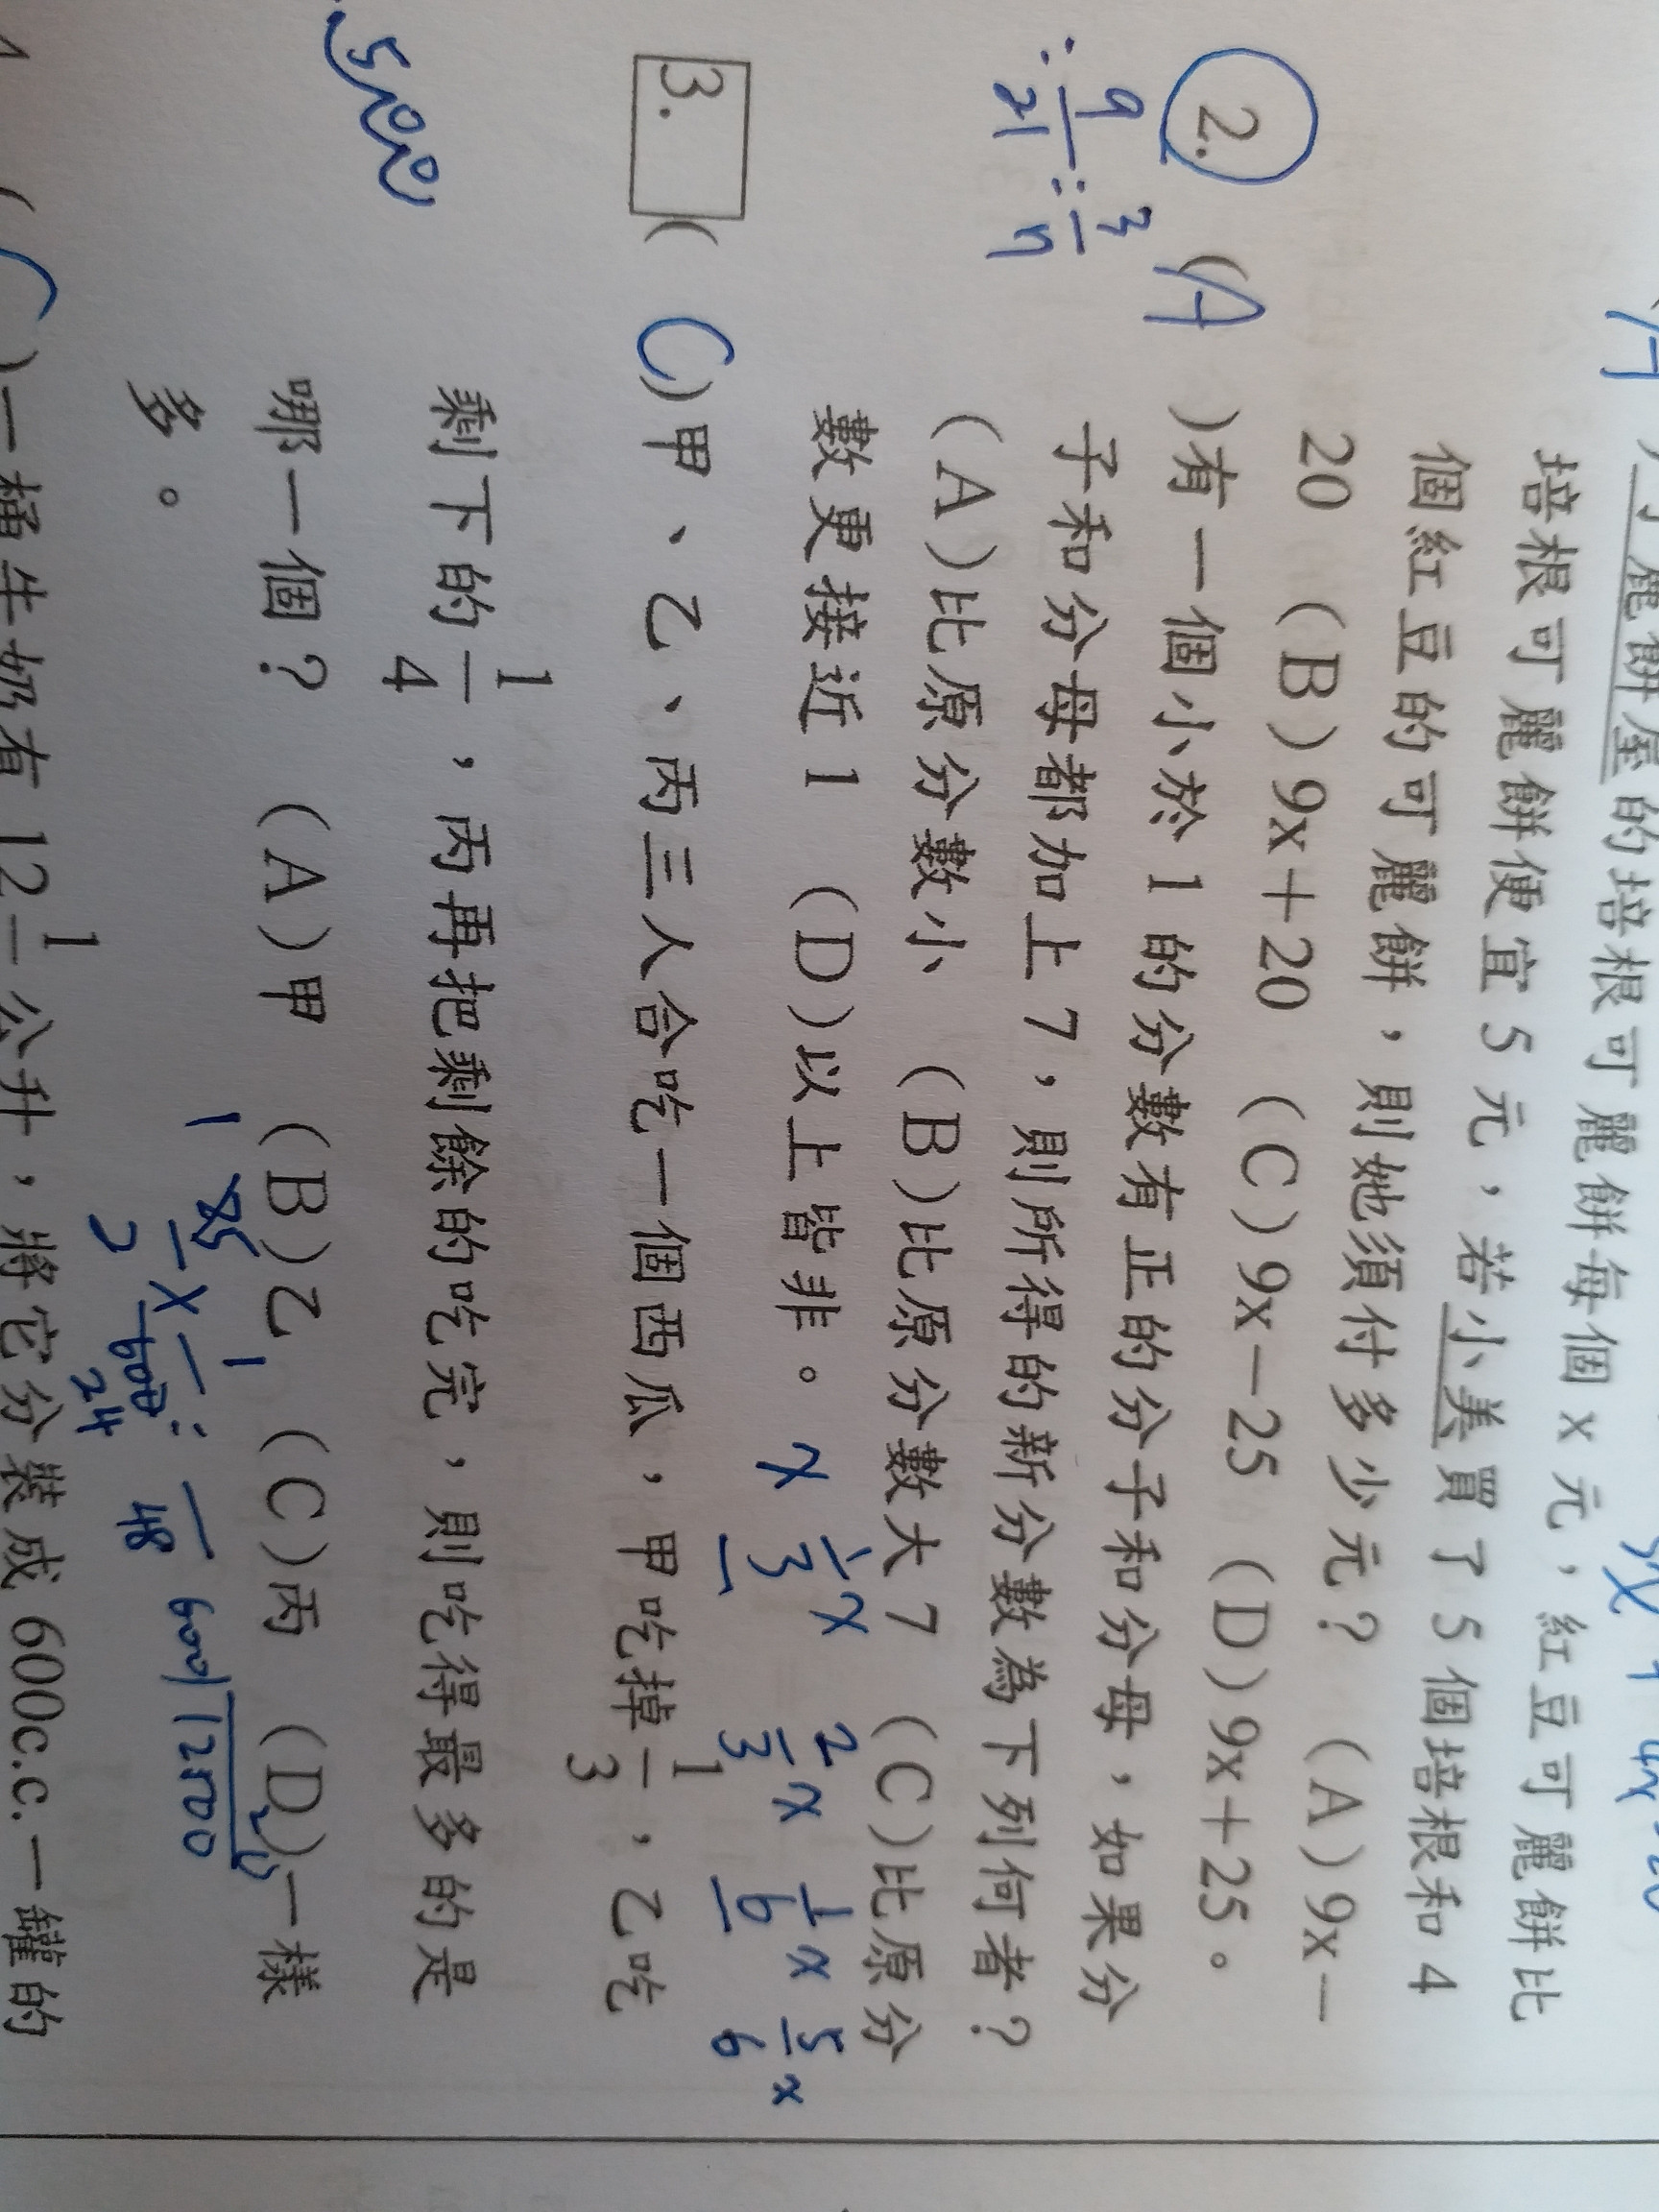 可麗餅屋的培根可麗餅每個 x 元，紅豆可麗餅比
培根可麗餅便宜 5 元，若小美買了 5 個培根和 4
個紅豆的可麗餅，則她須付多少元？ (A)9x－
20 (B)9x＋20 (C)9x－25 (D)9x＋25。
2. (A)有一個小於 1 的分數有正的分子和分母，如果分
子和分母都加上 7，則所得的新分數為下列何者？
(A)比原分數小 (B)比原分數大 7 (C)比原分
數更接近 1 (D)以上皆非。
x 1/3 x 2/3 x 1/6 x 5/6 x
3. (C)甲、乙、丙三人合吃一個西瓜，甲吃掉 1/3，乙吃
剩下的 1/4，丙再把剩餘的吃完，則吃得最多的是
哪一個？ (A)甲 (B)乙 (C)丙 (D)一樣
多。
(C)一桶牛奶有 12 1/ 公升，將它分裝成 600c.c.一罐的